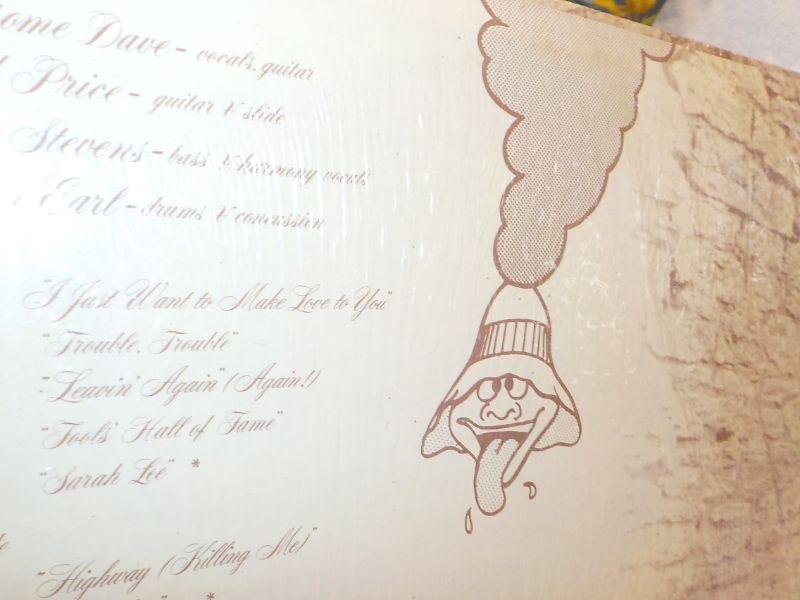 ome Dave - vocals, guitar
Price - guitar & slide
Stevens - bass & harmony vocals
Earl - drums & concussion
"I Just Want to Make Love to You"
"Trouble, Trouble"
"Leavin' Again" (Again!)
"Fools' Hall of Fame"
"Sarah Lee" *
"Highway (Killing Me)"